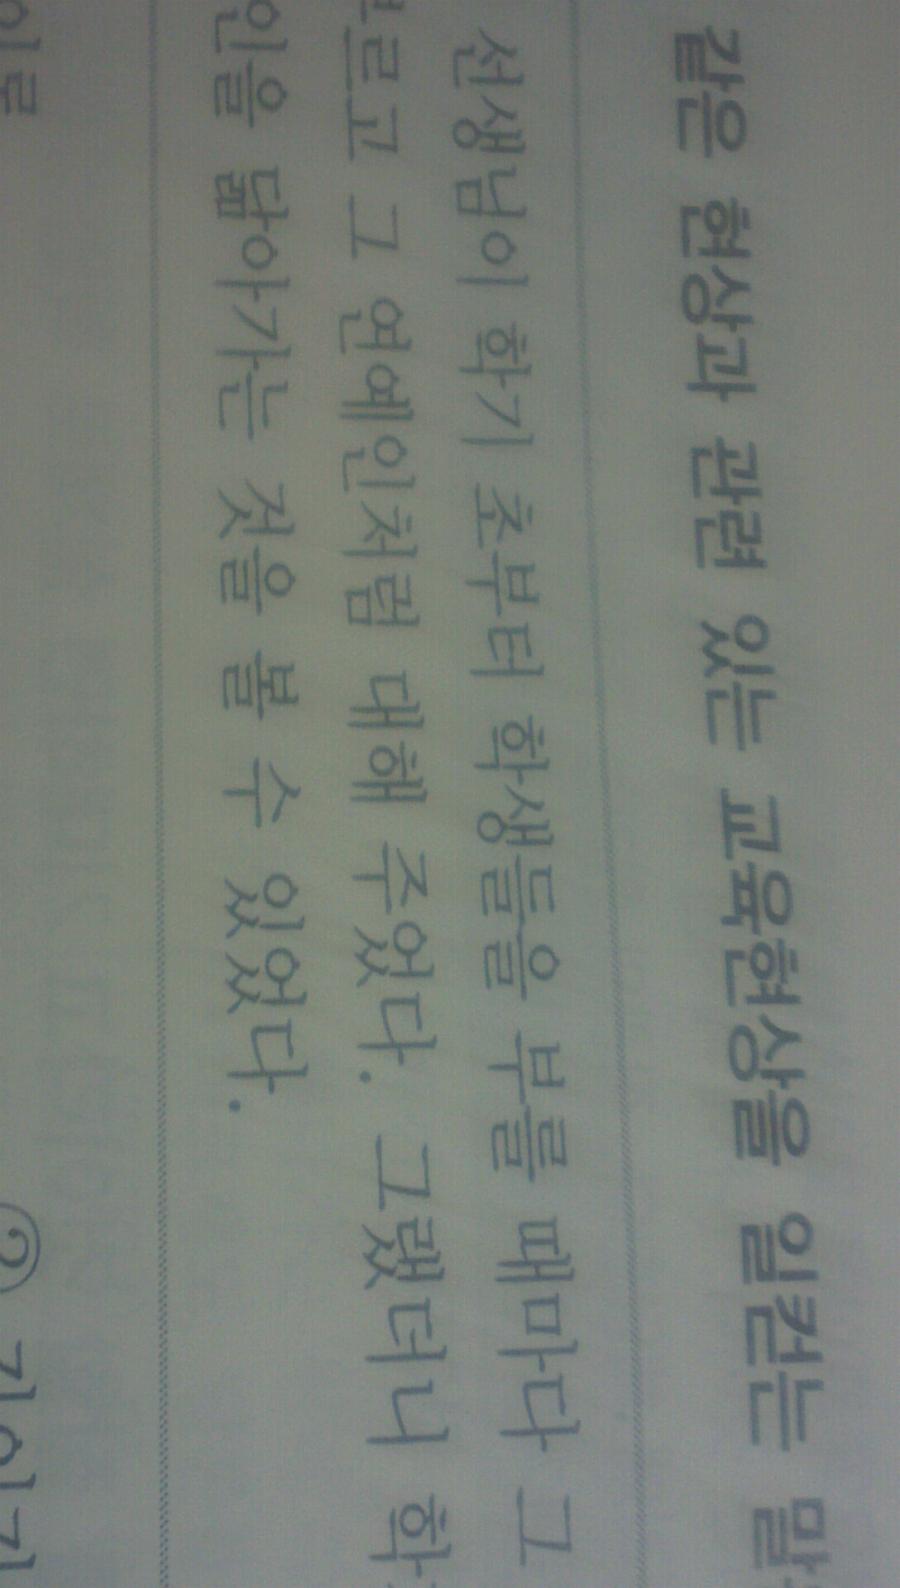 같은 현상과 관련 있는 교육현상을 일컫는 말
선생님이 학기 초부터 학생들을 부를 때마다 그
부르고 그 연예인처럼 대해 주었다. 그랬더니 학
인을 닮아가는 것을 볼 수 있었다.
②